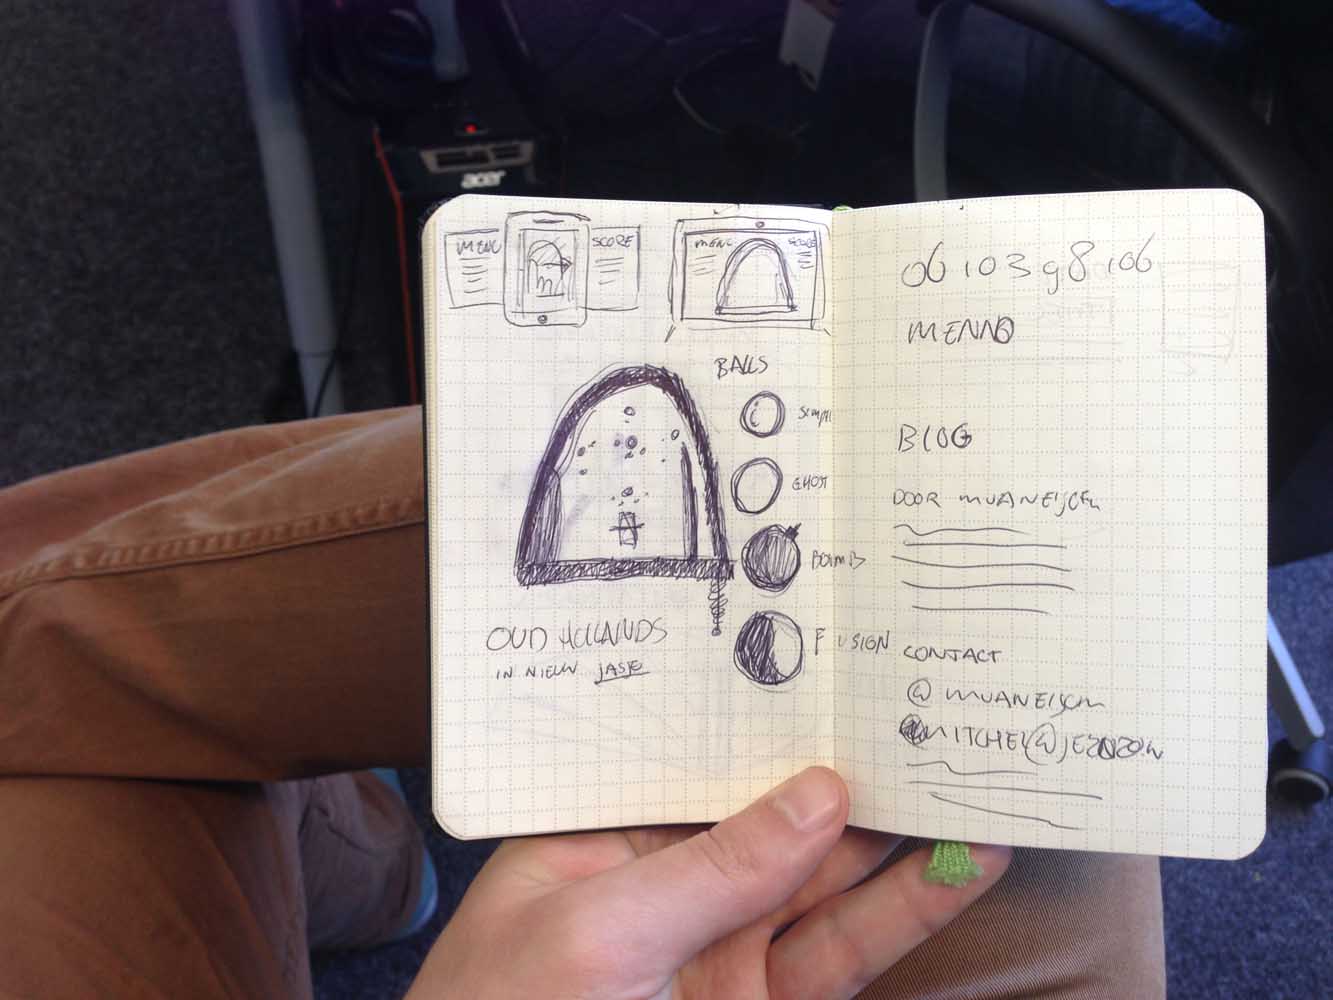 acer
MENU
SCORE
MENU
SCORE
BALLS
SIMPEL
GHOST
BOMB
FUSION
OUD HOLLANDS
IN NIEUW JASJE
06 103 98 106
MENNO
BLOG
DOOR MVANEIJGEN
CONTACT
@MVANEIJGEN